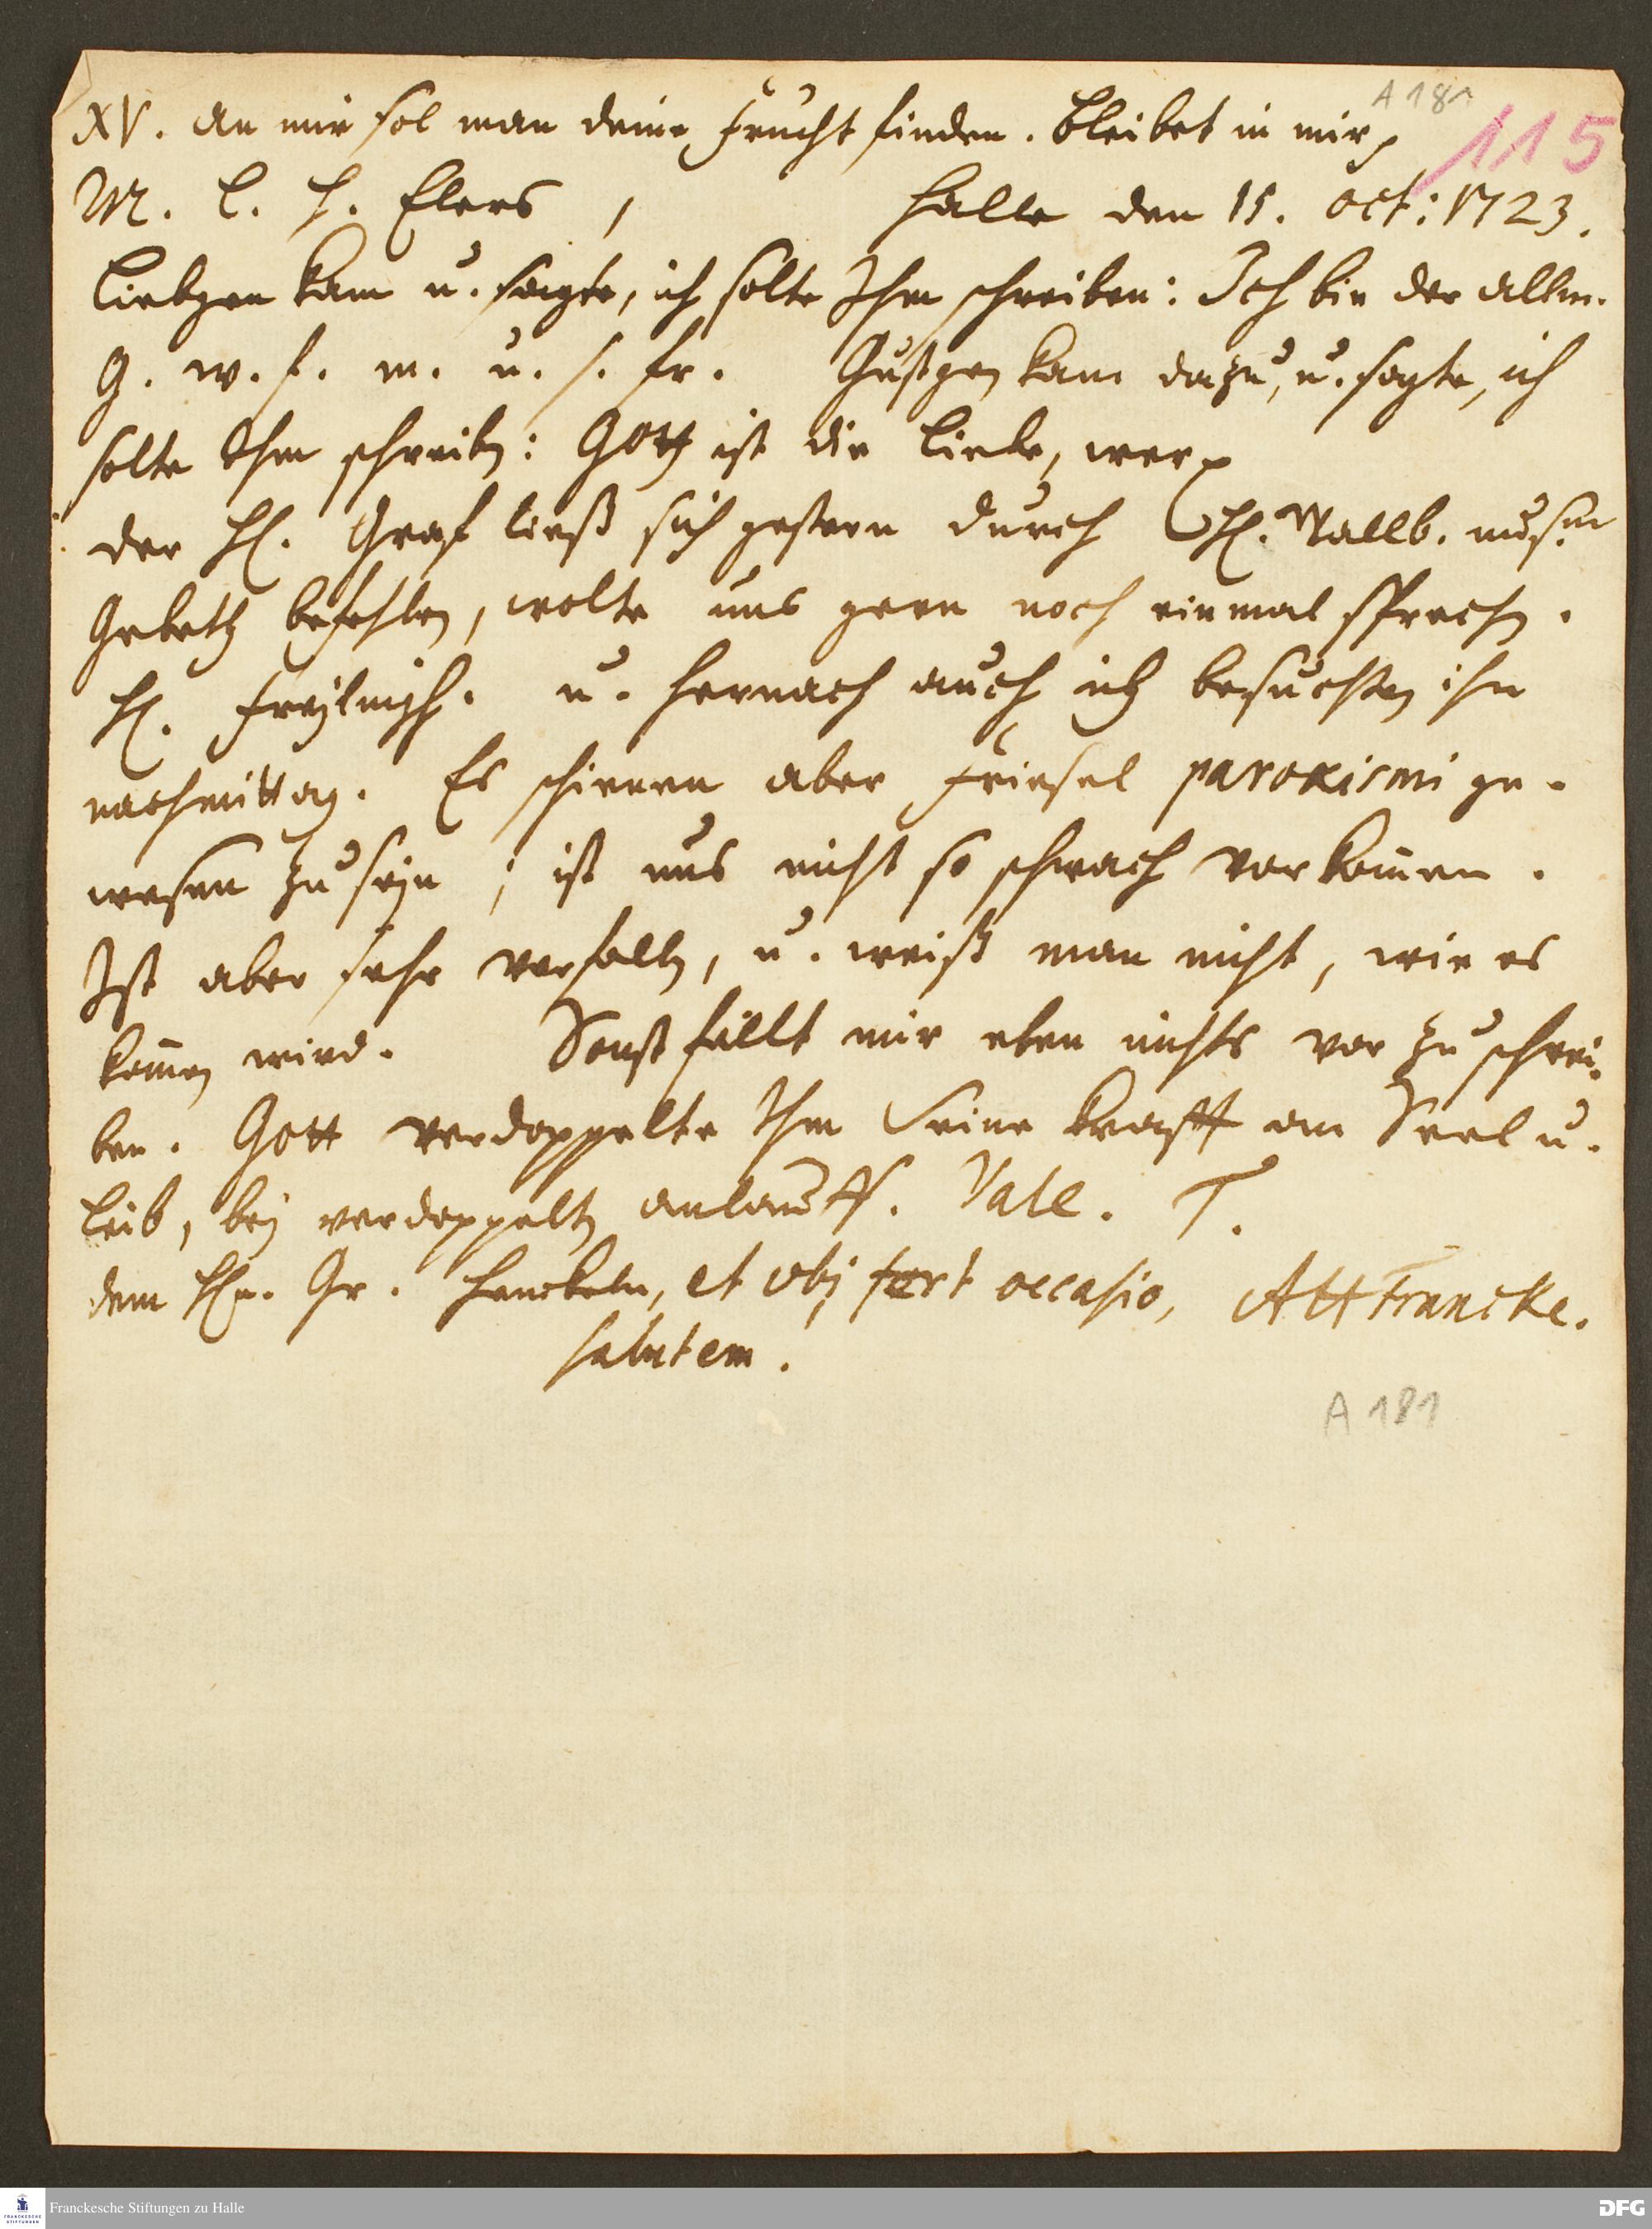 A 181
115
XV. An mir sol man deine Frucht finden. Bleibet in mir
M. L. H. Elers, Halle den 15. Oct: 1723.
Liebgen kam u. sagte, ich solte Ihm schreiben: Ich bin der allm.
G. w. f. m. u. s. fr. Gustgen kam dazu, u. sagte, ich
solte Ihm schreiben: Gott ist die Liebe, wer
Der H. Graf ließ sich gestern durch H. Wallb.
Gebeth befehlen, wolte uns gern noch einmal sprechen.
H. Freylingh. u. hernach auch ich besuchten ihn
nachmittag. Es schienen aber Friesel paroxismi ge-
wesen zu seyn; ist uns nicht so schwach vorkommen.
Ist aber sehr verfallen, u. weiß man nicht, wie es
kommen wird. Sonst fällt mir eben nichts vor zu schrei-
ben. Gott verdoppelte Ihm Seine Krafft an Seel u.
Leib, bey verdoppelten anlauff. Vale. T.
dem Hn. Gr. Henckeln, et ubi fert occasio, AHFrancke.
salutem.
A 181
Franckesche Stiftungen zu Halle
DFG